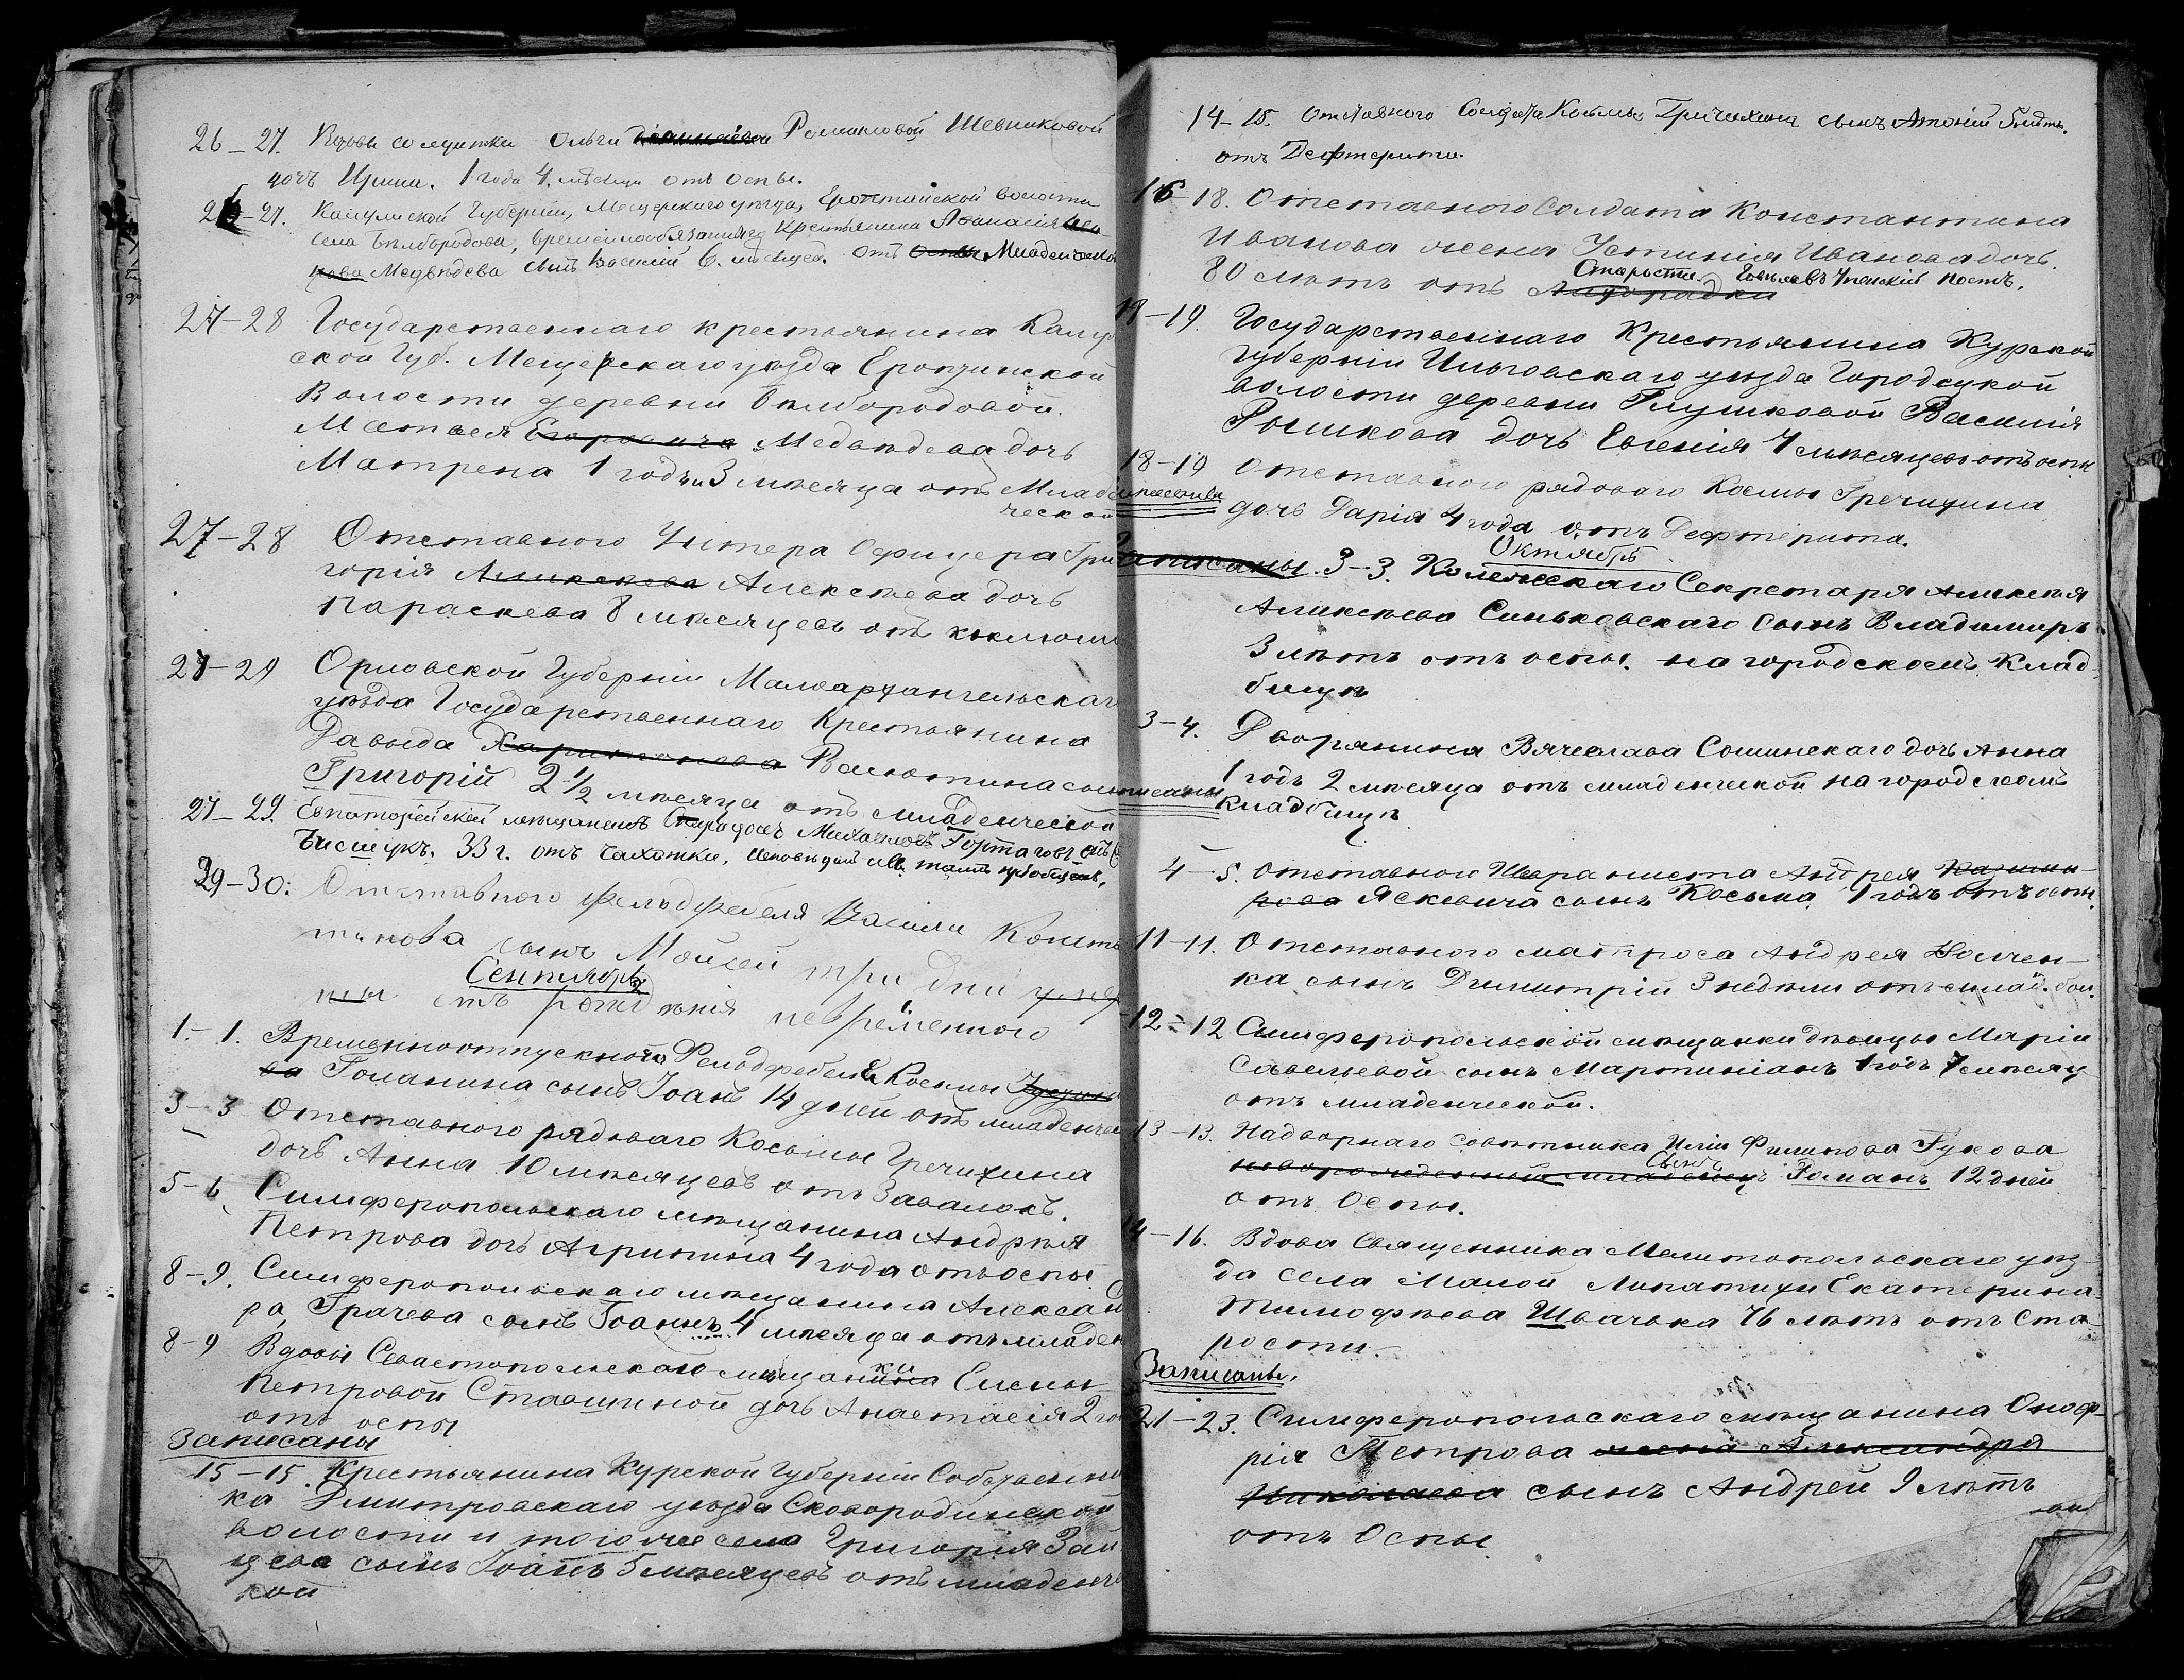 26-27. Вдовы солдатки Ольги Романовой Шевниковой
дочь Ирина. 1 года 4. мѣсяца отъ оспы.
26-27. Калужской Губерніи, Мещерскаго уѣзда, волости
села Бѣлбородова, временнообязаннаго Крестьянина Аѳанасія
Медвѣдева сынъ Василій 6. мѣсяцев. отъ оспы Младенческой
27-28 Государственнаго крестьянина Калуж
ской Губ. Мещерскаго уѣзда Еропкинской
Волости деревни Бѣлбородовой.
Матвея Егоровича Медвѣдева дочь
Матрена 1 годъ и 3 мѣсяца отъ Млад
ческой
27-28 Отставного Унтера Офицера Гри
горія Алексѣева Алексѣева дочь
Параскева 8 мѣсяцевъ отъ коклюша
28-29 Орловской Губерніи Малоархангельскаго
уѣзда Государственнаго Крестьянина
Давыда Харитонова Валютина сынъ
Григорій 2 1/2 мѣсяца отъ младенческой
27-29. Евпаторійскій мѣщанинъ Михайловъ
33 г. отъ чахотки,
29-30: Отставного фельдфебеля Васили Конста
нтинова сынъ Мойсей три дни
отъ рожденія невременного
Сентябрь
1.-1. Временноотпускного Фельдфебеля Космы
ва Голанина сынъ Іоанъ 14 дней отъ младенчес
3-3 Отставного рядоваго Косьмы Гречихина
дочь Анна 10 мѣсяцевъ отъ Завалокъ.
5-6 Симферопольскаго мѣщанина Андрѣя
Петрова дочь Агрипина 4 года отъ оспы
8-9. Симферопольскаго мѣщанина Александ
ра, Грачева сынъ Іоаннъ 4 мѣсяца отъ младен
8-9 Вдовы Севастопольскаго мѣщанина ки Елены
Петровой Ставшиной дочь Анастасія 2 год
отъ оспы
Записаны
15-15. Крестьянина Курской Губерніи Собственни
ка Дмитровскаго уѣзда Сковородинской
волости и того же села Григорія Зай
цева сынъ Іоанъ 5 мѣсяцевъ отъ младенче
кой
14-15. Отставного Солдата Косьмы Гричихина сынъ Антоній
отъ Дефтерита.
16-18. Отставного Солдата Константина
Иванова жена Устинія Иванова дочь.
80 лѣтъ отъ Лихорадки Старости. Успенскій постъ.
18-19. Государственнаго Крестьянина Курской
Губерніи Льговскаго уѣзда Городецкой
волости деревни Глушковой Василія
Рышкова дочь Евгенія 7 мѣсяцевъ отъ оспы
18-19 Отставного рядоваго Космы Гречихина
дочь Дарія 4 года отъ Дефтерита.
Октябрь
Записаны. 3-3. Колежскаго Секретаря Алексѣя
Алексѣева Синьковскаго сынъ Владимиръ
3 лѣтъ отъ оспы. на городскомъ Клад-
бищѣ
3-4. Дворянина Вячеслава Сошинскаго дочь Анна
1 годъ 2 мѣсяца отъ младенческой на городскомъ
кладбищѣ
4-5. Отставной Андрея Казими-
рова Яскевича сынъ Косьма 1 годъ отъ оспы.
11-11. Отставного матроса Андрея Волчен-
ка сынъ Димитрій 3 недѣли отъ млад. бол.
12-12 Симферопольской мѣщанки дѣвицы Маріи
Савельевой сынъ Мартиніанъ 1 годъ 7 мѣсяц
отъ младенческой.
13-13. Надворнаго совѣтника Иліи Филипова Гукова
новорожденный младенецъ Сынъ Романъ 12 дней
отъ Оспы.
14-16. Вдова Священника Мелитопольскаго уѣз-
да села Малой Лепатихи Екатерина
Тимофѣева Швачька 76 лѣтъ отъ Ста-
рости.
Записаны.
21-23. Симферопольскаго мѣщанина Оноф-
рія Петрова жена Александра
Николаева сынъ Андрей 9 лѣтъ
отъ Оспы